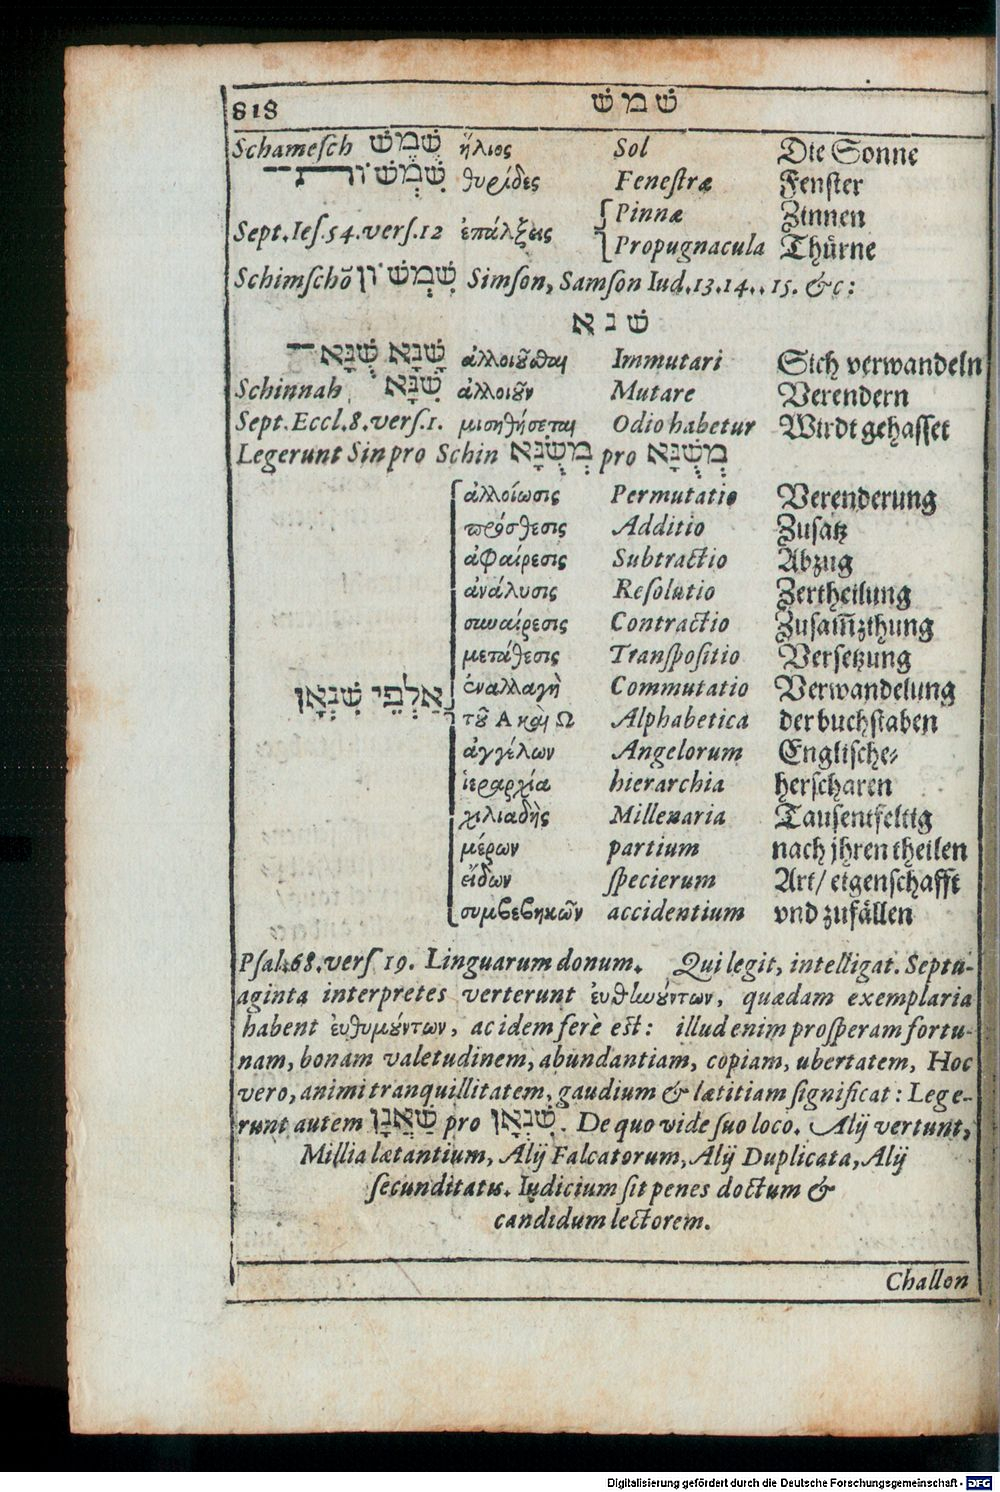 818 שׁ מ שׁ
Schameſch שֶׁמֶשׁ ἥλιος Sol Die Sonne
שִׁמְשׁוֹת-- θυρίδες Feneſtræ Fenſter
Pinnæ Zinnen
Sept. Ieſ. 54. verſ. 12 ἐπάλξεις Propugnacula Thürne
Schimſchõ שִׁמְשׁוֹן Simſon, Samſon Iud. 13. 14.. 15. &c:
שׁ נ א
שָׁנָא שֻׁנָּא-- ἀλλοιοῦσθαι Immutari Sich verwandeln
Schinnah שִׁנָּא ἀλλοιοῦν Mutare Verendern
Sept. Eccl. 8. verſ. 1. μισηθήσεται Odio habetur Wirdt gehaſſet
Legerunt Sin pro Schin מְשֻׂנָּא pro מְשֻׁנָּא
ἀλλοίωσις Permutatio Verenderung
πρόσθεσις Additio Zuſatz
ἀφαίρεσις Subtractio Abzug
ἀνάλυσις Reſolutio Zertheilung
συναίρεσις Contractio Zuſam̃zthung
μετάθεσις Tranſpoſitio Verſetzung
אַלְפֵי שִׁנְאָן ἐναλλαγὴ Commutatio Verwandelung
τοῦ Α καὶ Ω Alphabetica der buchſtaben
ἀγγέλων Angelorum Engliſche⸗
ἱεραρχία hierarchia herſcharen
χιλιαδὴς Millenaria Tauſentfeltig
μέρων partium nach jhren theilen
εἴδων ſpecierum Art/ eigenſchafft
συμβεβηκῶν accidentium vnd zufällen
Pſal. 68. verſ 19. Linguarum donum. Qui legit, intelligat. Septu-
aginta interpretes verterunt εὐθηνούντων, quædam exemplaria
habent εὐθυμούντων, ac idem ferè eſt: illud enim proſperam fortu-
nam, bonam valetudinem, abundantiam, copiam, ubertatem, Hoc
vero, animi tranquillitatem, gaudium & lætitiam ſignificat: Lege-
runt autem שַׁאֲנָן pro שִׁנְאָן. De quo vide ſuo loco. Alij vertunt,
Millia lætantium, Alij Falcatorum, Alij Duplicata, Alij
ſecunditatis. Iudicium ſit penes doctum &
candidum lectorem.
Challon
Digitalisierung gefördert durch die Deutsche Forschungsgemeinschaft - DFG